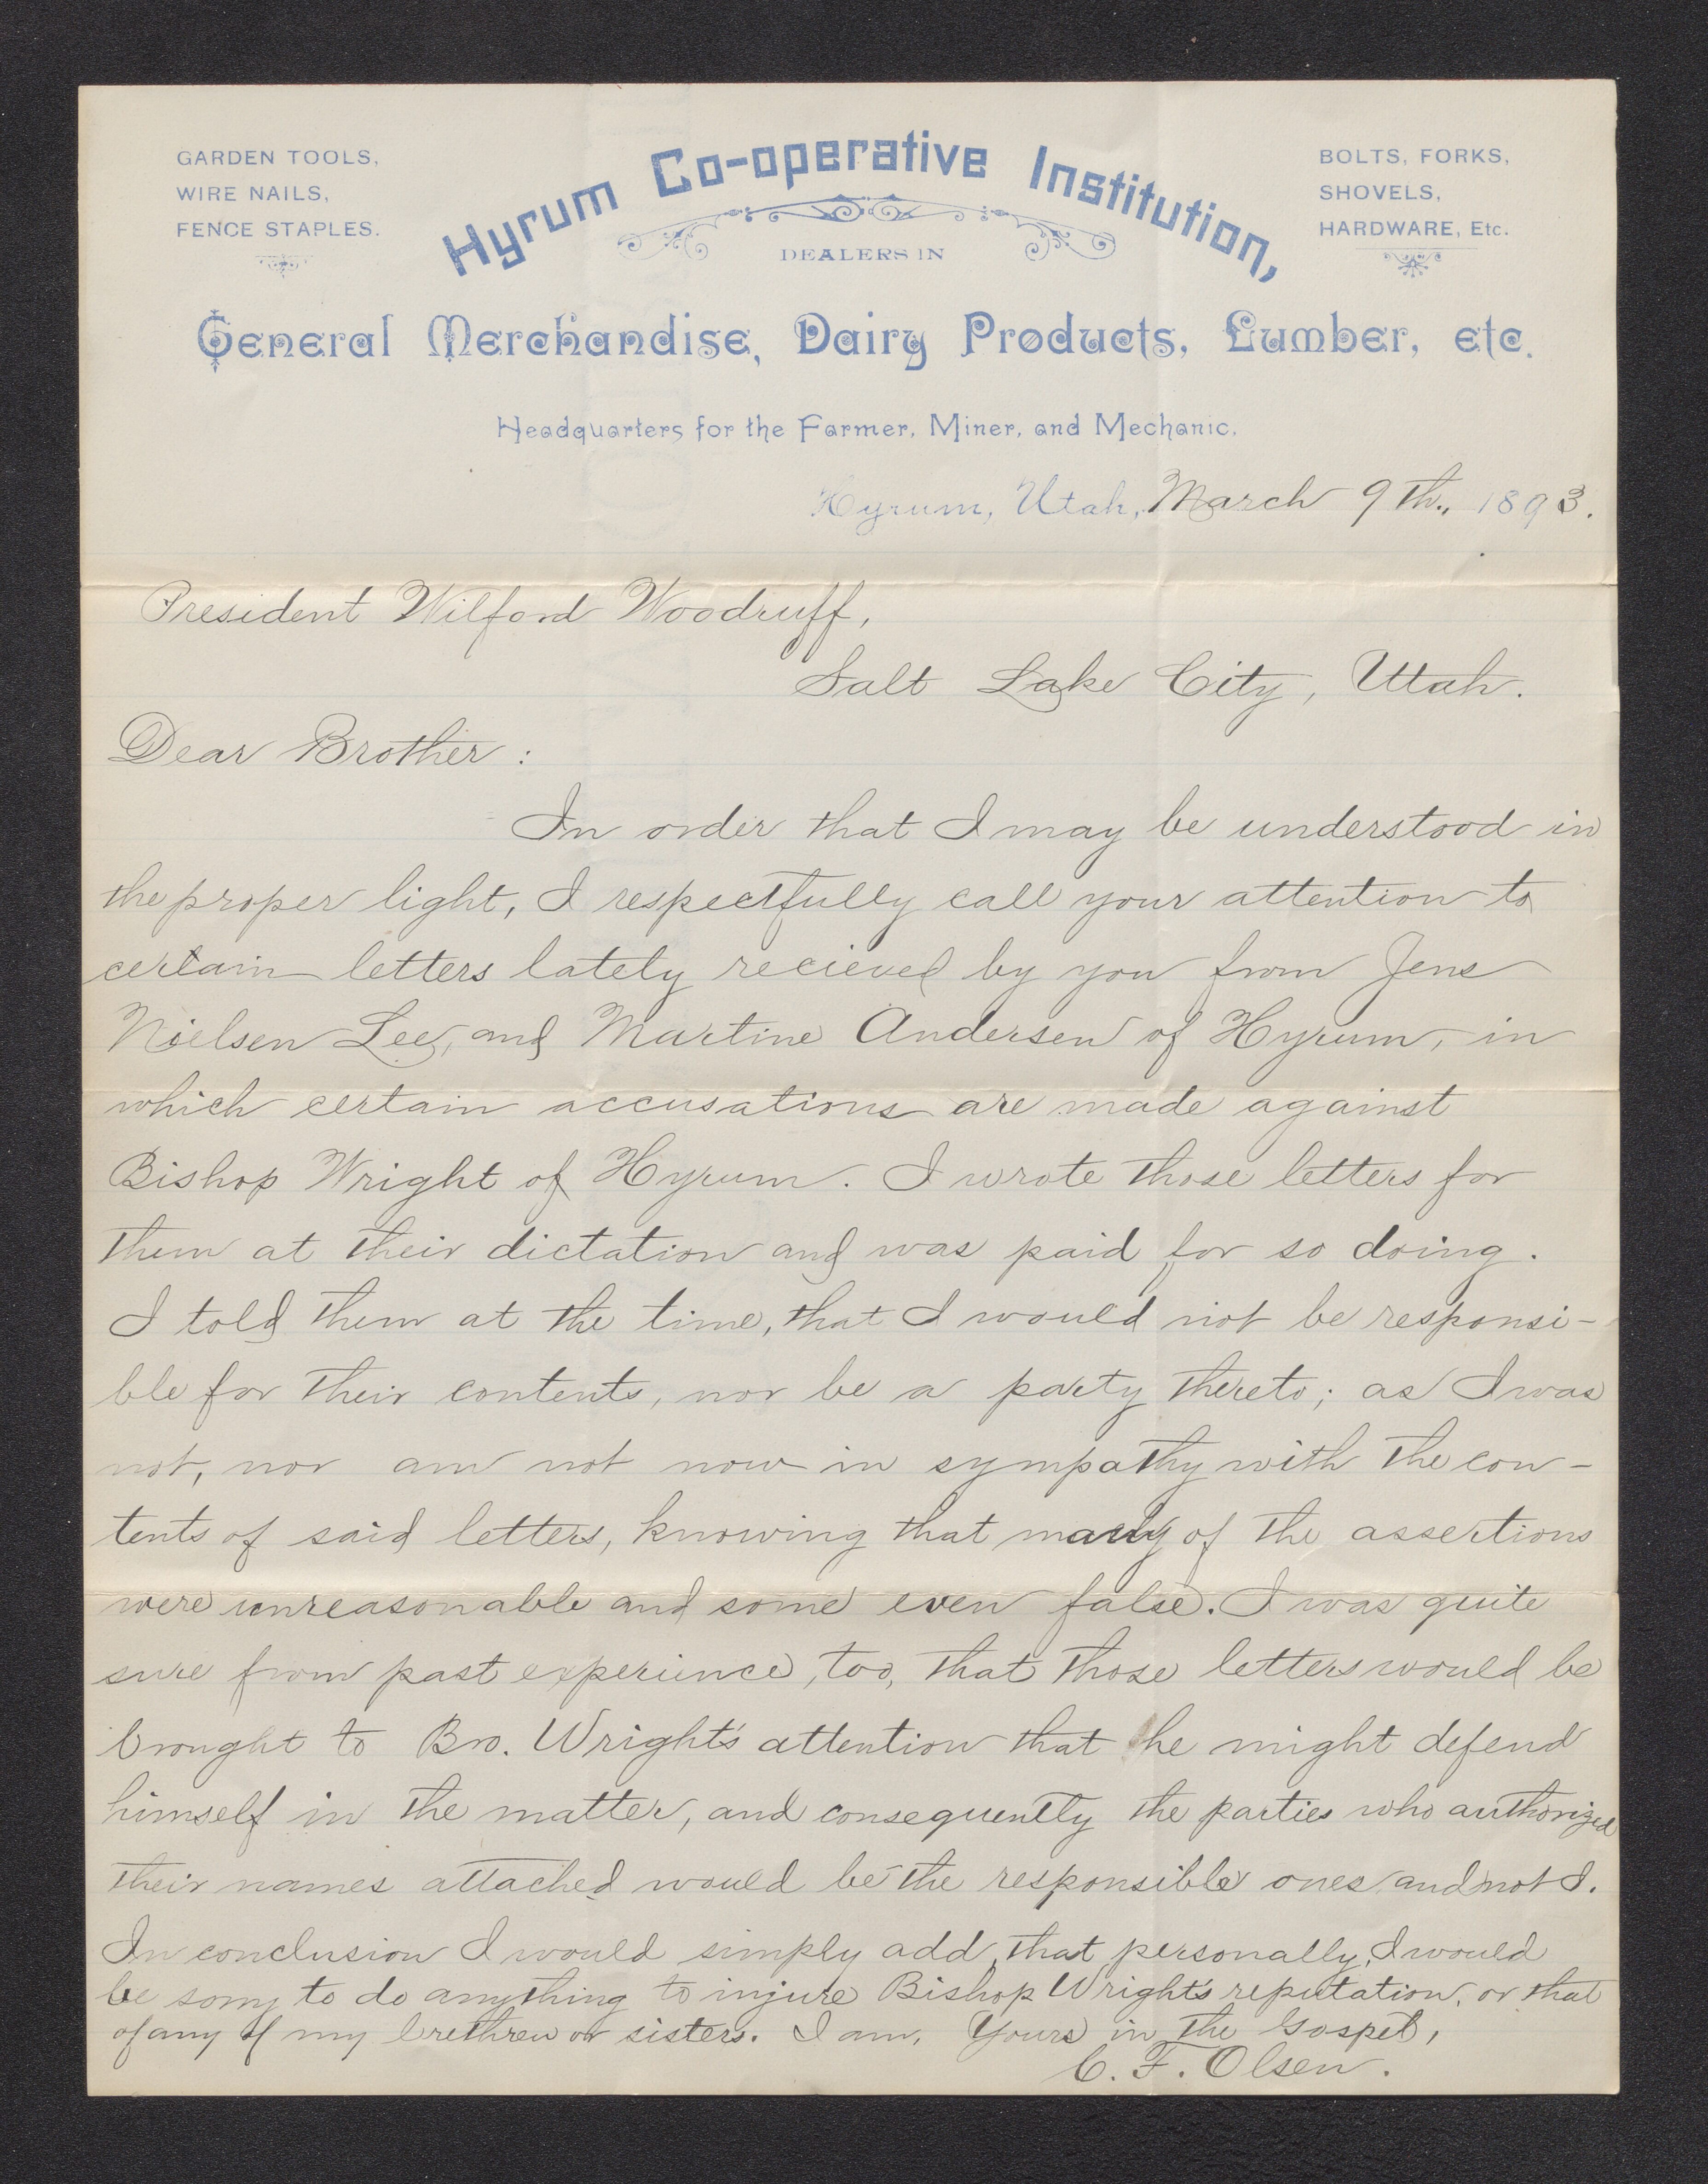 GARDEN TOOLS,
WIRE NAILS,
FENCE STAPLES.
Hyrum Co-operative Institution,
DEALERS IN
BOLTS, FORKS,
SHOVELS,
HARDWARE, Etc.
General Merchandise, Dairy Products, Lumber, etc.
Headquarters for the Farmer, Miner, and Mechanic.
Hyrum, Utah, March 9th., 1893.
President Wilford Woodruff,
Salt Lake City, Utah.
Dear Brother:
In order that I may be understood in
the proper light, I respectfully call your attention to
certain letters lately recieved by you from Jens
Nielsen Lee, and Martine Andersen of Hyrum, in
which certain accusations are made against
Bishop Wright of Hyrum. I wrote those letters for
them at their dictation and was paid for so doing.
I told them at the time, that I would not be responsi-
ble for their contents, nor be a party thereto; as I was
not, nor am not now in sympathy with the con-
tents of said letters, knowing that many of the assertions
were unreasonable and some even false. I was quite
sure from past experience, too, that those letters would be
brought to Bro. Wright's attention that he might defend
himself in the matter, and consequently the parties who authorized
their names attached would be the responsible ones and not I.
In conclusion I would simply add, that personally, I would
be sorry to do anything to injure Bishop Wright's reputation, or that
of any of my brethren or sisters. I am, Yours in the Gospel,
C. F. Olsen.